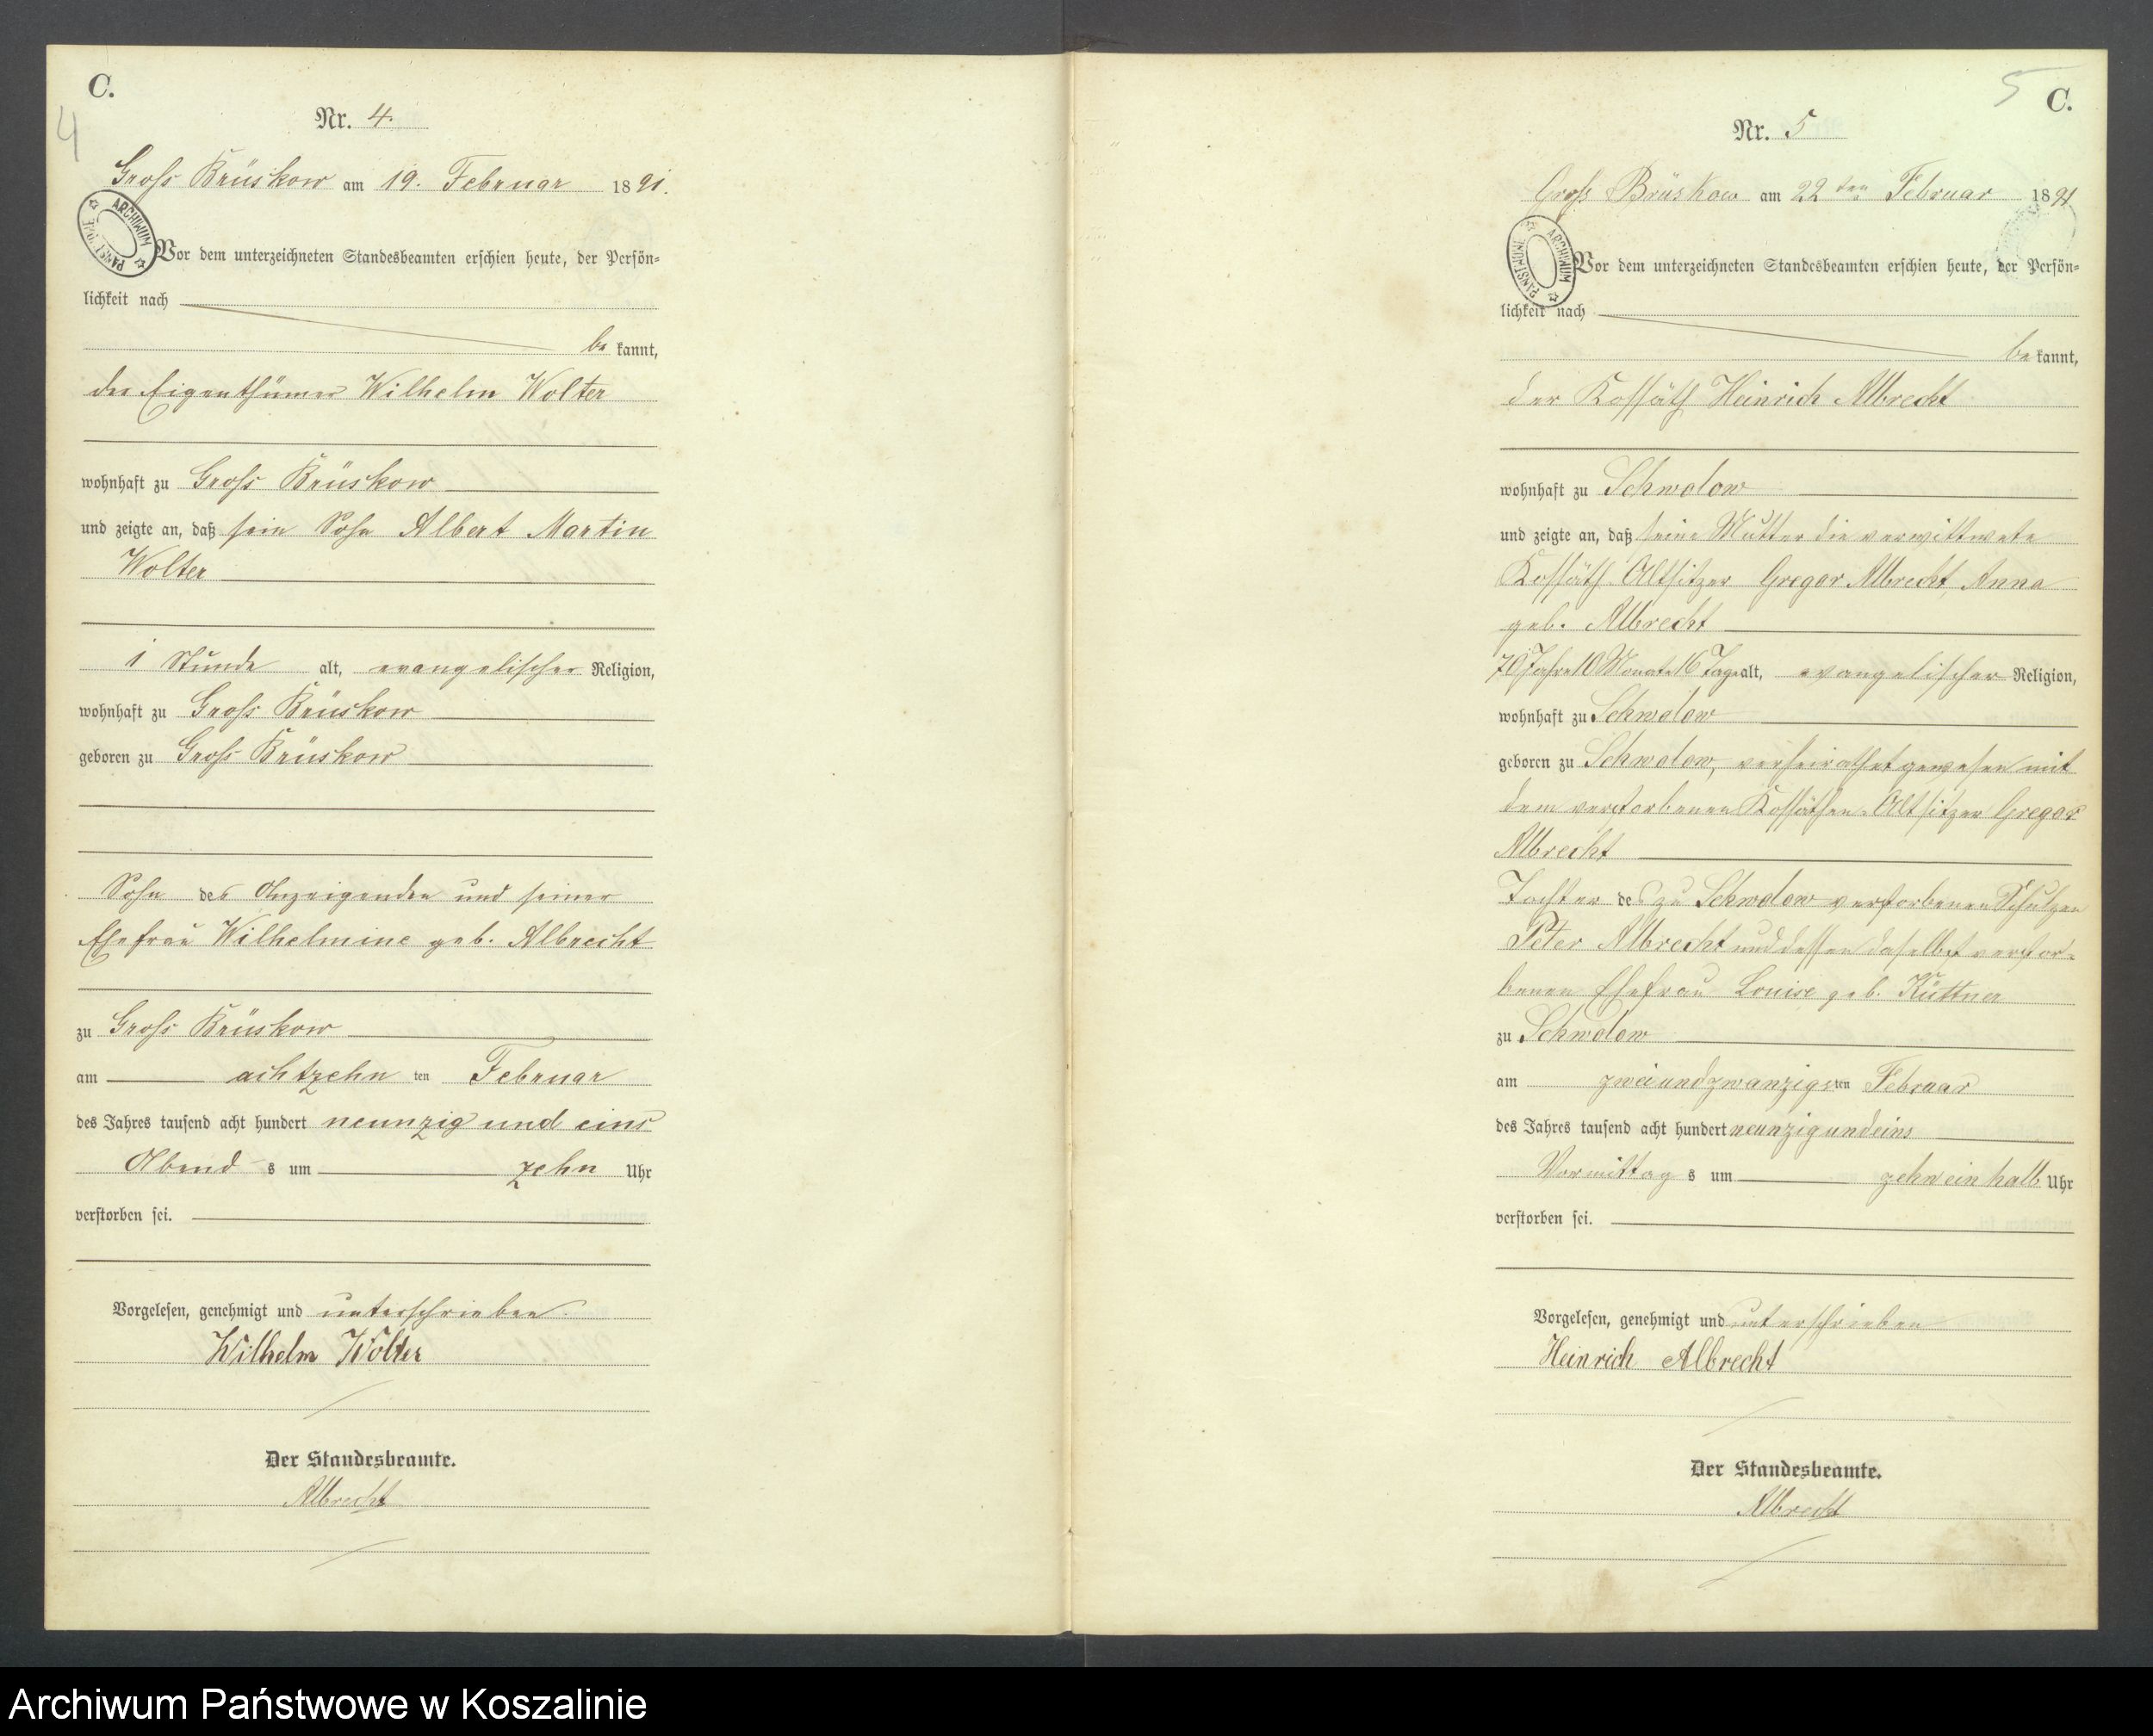 C.
4
Nr. 4.
Groß Brüskow am 19. Februar 1891.
ARCHIWUM PAŃSTWOWE
Vor dem unterzeichneten Standesbeamten erschien heute, der Persön=
lichkeit nach
be kannt,
der Eigenthümer Wilhelm Wolter
wohnhaft zu Groß Brüskow
und zeigte an, daß sein Sohn Albert Martin
Wolter
1 Stunde alt, evangelischer Religion,
wohnhaft zu Groß Brüskow
geboren zu Groß Brüskow
Sohn des Anzeigenden und seiner
Ehefrau Wilhelmine geb. Albrecht
zu Groß Brüskow
am achtzehn ten Februar
des Jahres tausend acht hundert neunzig und eins
Abend s um zehn Uhr
verstorben sei.
Vorgelesen, genehmigt und unterschrieben.
Wilhelm Wolter
Der Standesbeamte.
Albrecht
5
C.
Nr. 5
Groß Brüskow am 22ten Februar 1891
ARCHIWUM PAŃSTWOWE
Vor dem unterzeichneten Standesbeamten erschien heute, der Persön=
lichkeit nach
be kannt,
der Kossäth Heinrich Albrecht
wohnhaft zu Schwolow
und zeigte an, daß seine Mutter die verwittwete
Kossäth Altsitzer Gregor Albrecht, Anna
geb. Albrecht
70 Jahre 10 Monate 16 Tage alt, evangelischer Religion,
wohnhaft zu Schwolow
geboren zu Schwolow, verheirathet gewesen mit
dem verstorbenen Kossäthen-Altsitzer Gregor
Albrecht
Tochter des zu Schwolow verstorbenen Schulzen
Peter Albrecht und dessen daselbst verstor-
benen Ehefrau Louise geb. Küttner
zu Schwolow
am zweiundzwanzigsten Februar
des Jahres tausend acht hundert neunzigundeins
Vormittag s um zehneinhalb Uhr
verstorben sei.
Vorgelesen, genehmigt und unterschrieben
Heinrich Albrecht
Der Standesbeamte.
Albrecht
Archiwum Państwowe w Koszalinie